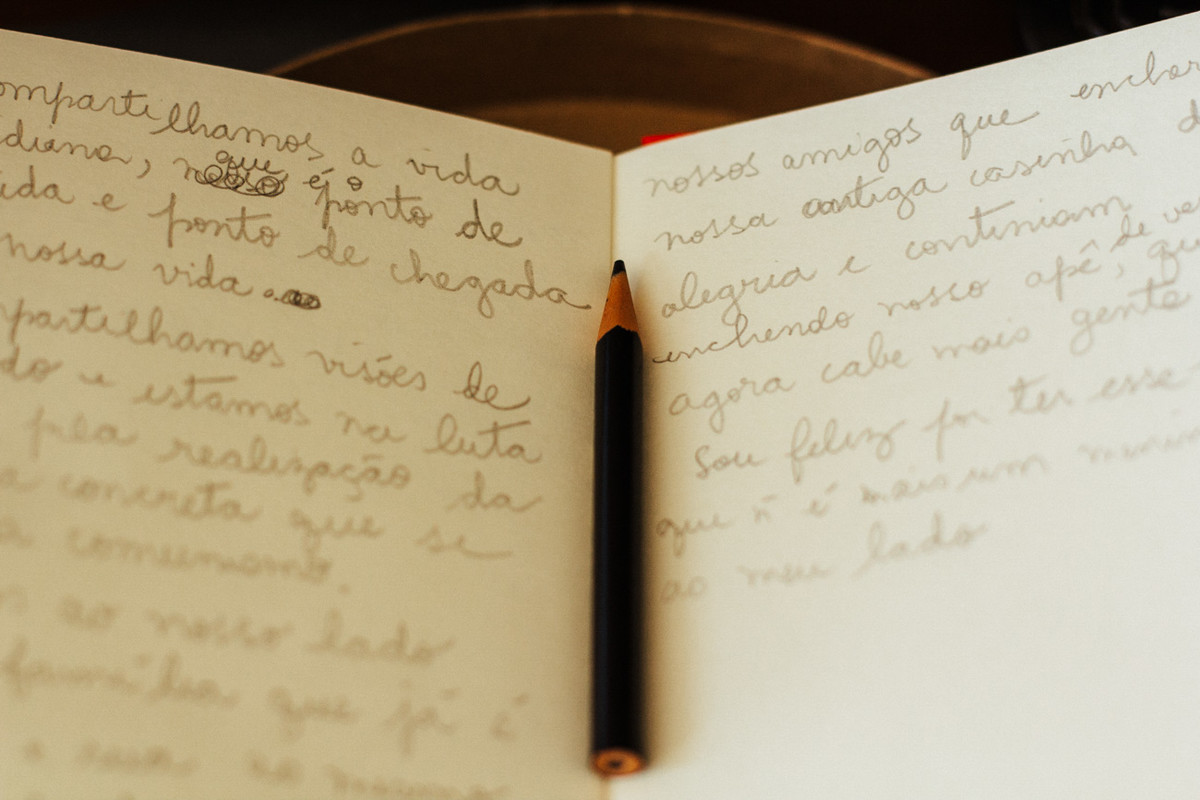 ompartilhamos a vida
diana, que é o ponto de
ida e ponto de chegada
nossa vida.
partilhamos visões de
do e estamos na luta
pela realização da
a concreta que se
a comunismo.
ao nosso lado
família que já é
a
nossos amigos que
nossa antiga casinha d
alegria e continiam
enchendo nosso apê, de ve que
agora cabe mais gente
Sou feliz por ter esse
que ñ é mais um
ao meu lado